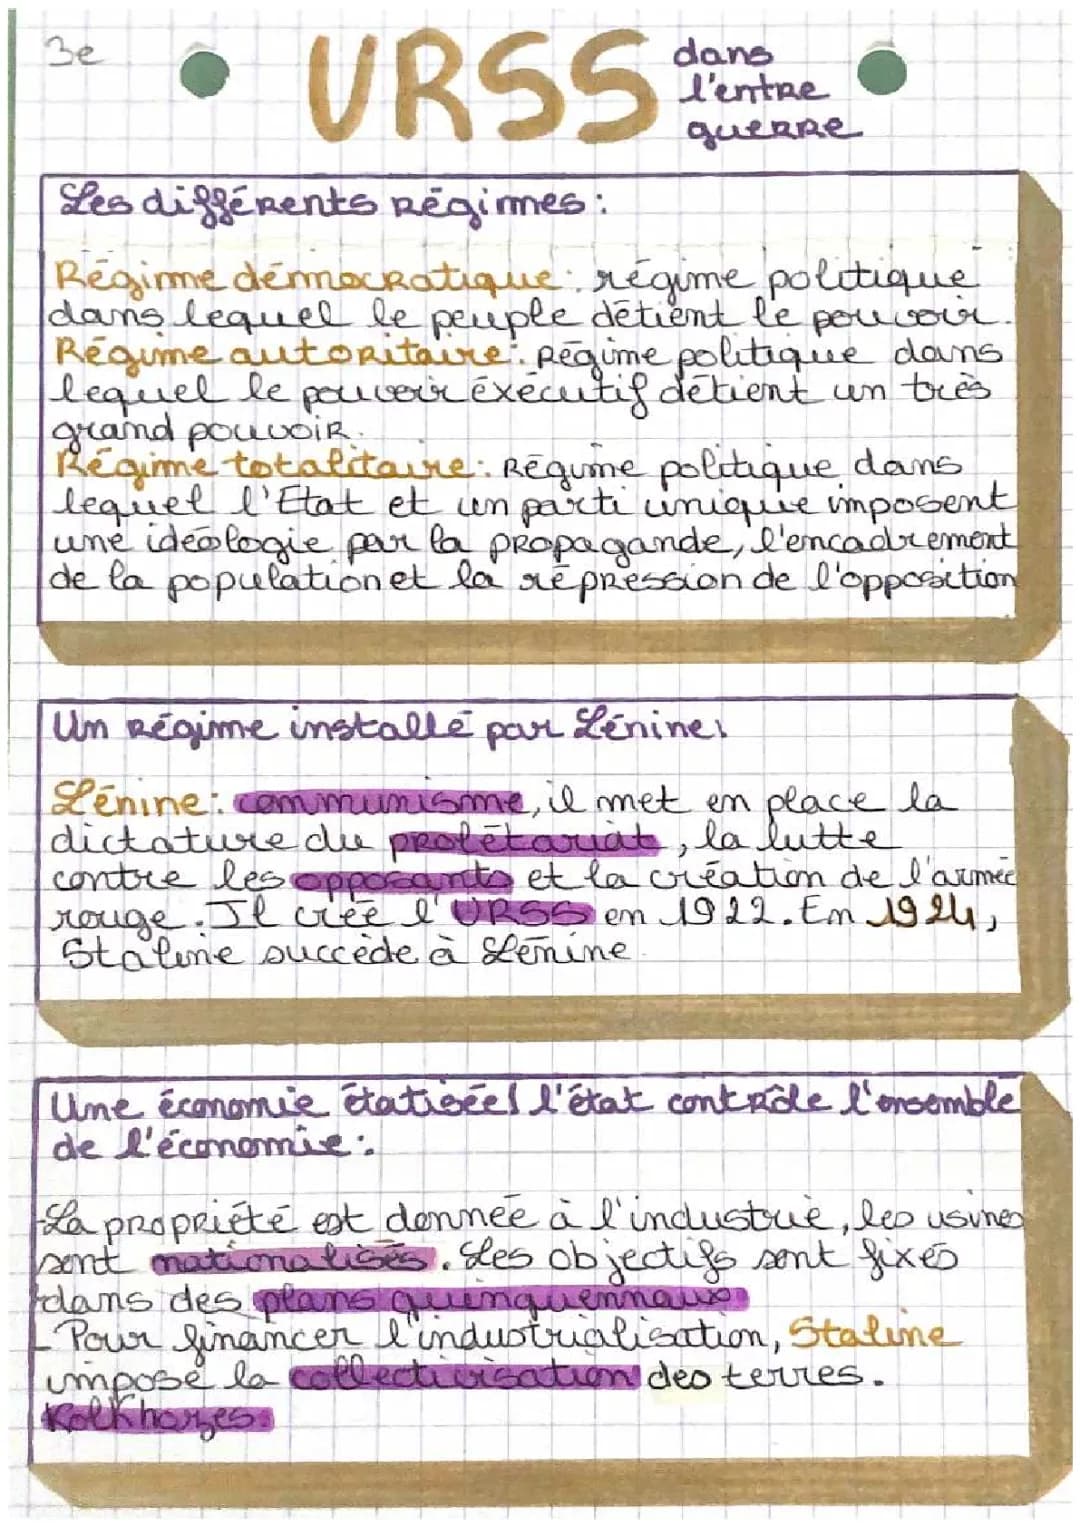 3e
URSS
dans
l'entre
guerre
Les différents Régimes :
Régime démocratique : régime politique
dans lequel le peuple détient le pouvoir.
Régime autoritaire : Régime politique dans
lequel le pouvoir éxécutif détient un très
grand pouvoir.
Régime totalitaire : Régime politique dans
lequel l'Etat et un parti unique imposent
une idéologie par la propagande, l'encadrement
de la population et la répression de l'opposition
Un Régime installé par Lénine :
Lénine : communisme, il met en place la
dictature du prolétariat, la lutte
contre les opposants et la création de l'armée
rouge. Il crée l'URSS en 1922. En 1924,
Staline succède à Lénine.
Une économie étatisée/ l'état contrôle l'ensemble
de l'économie :
-La propriété est donnée à l'industrie, les usines
sont nationalisés. Les objectifs sont fixés
dans des plans quinquennaux
- Pour financer l'industrialisation, Staline
impose la collectivisation des terres.
Kolkhozes